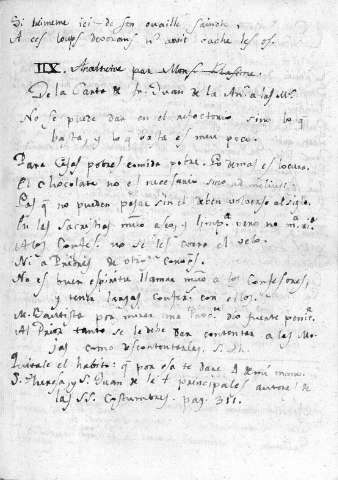 Si luimeme ici de son ouaille
A ces loups devorans n'avoit cache les os.
IIX. par Mons.
De la Carta de fr. Juan de la An.ᵃ a las M.ˢ
No se puede dar en el refectorio sino lo q̃
basta, y lo q̃ basta es mui poco.
Para Casas pobres comida pobre. Lo demas es locura.
El chocolate no es necesario sino
Las q̃ no pueden pasar sin el deben volverse al siglo.
En las sacristias mũo aseo, y limp.ᵃ pero no
A los Confes.ˢ no se les corre el velo.
Ni a P.ᵉˢ de otro conv.ˢ
No es buen espiritu llamar mũo a los Confesores,
y tener largas Confer.ˢ con ellos.
M. Bautista por mirar una dio fuerte penit.ᵃ
Al Prior tanto se le debe dar contentar a las Mo-
jas como descontentarles. S. Th.
Quitale el habito: q̃ por esa te dare
S. Theresa, y S. Juan de la † principales autores de
las SS. Costumbres. pag. 311.